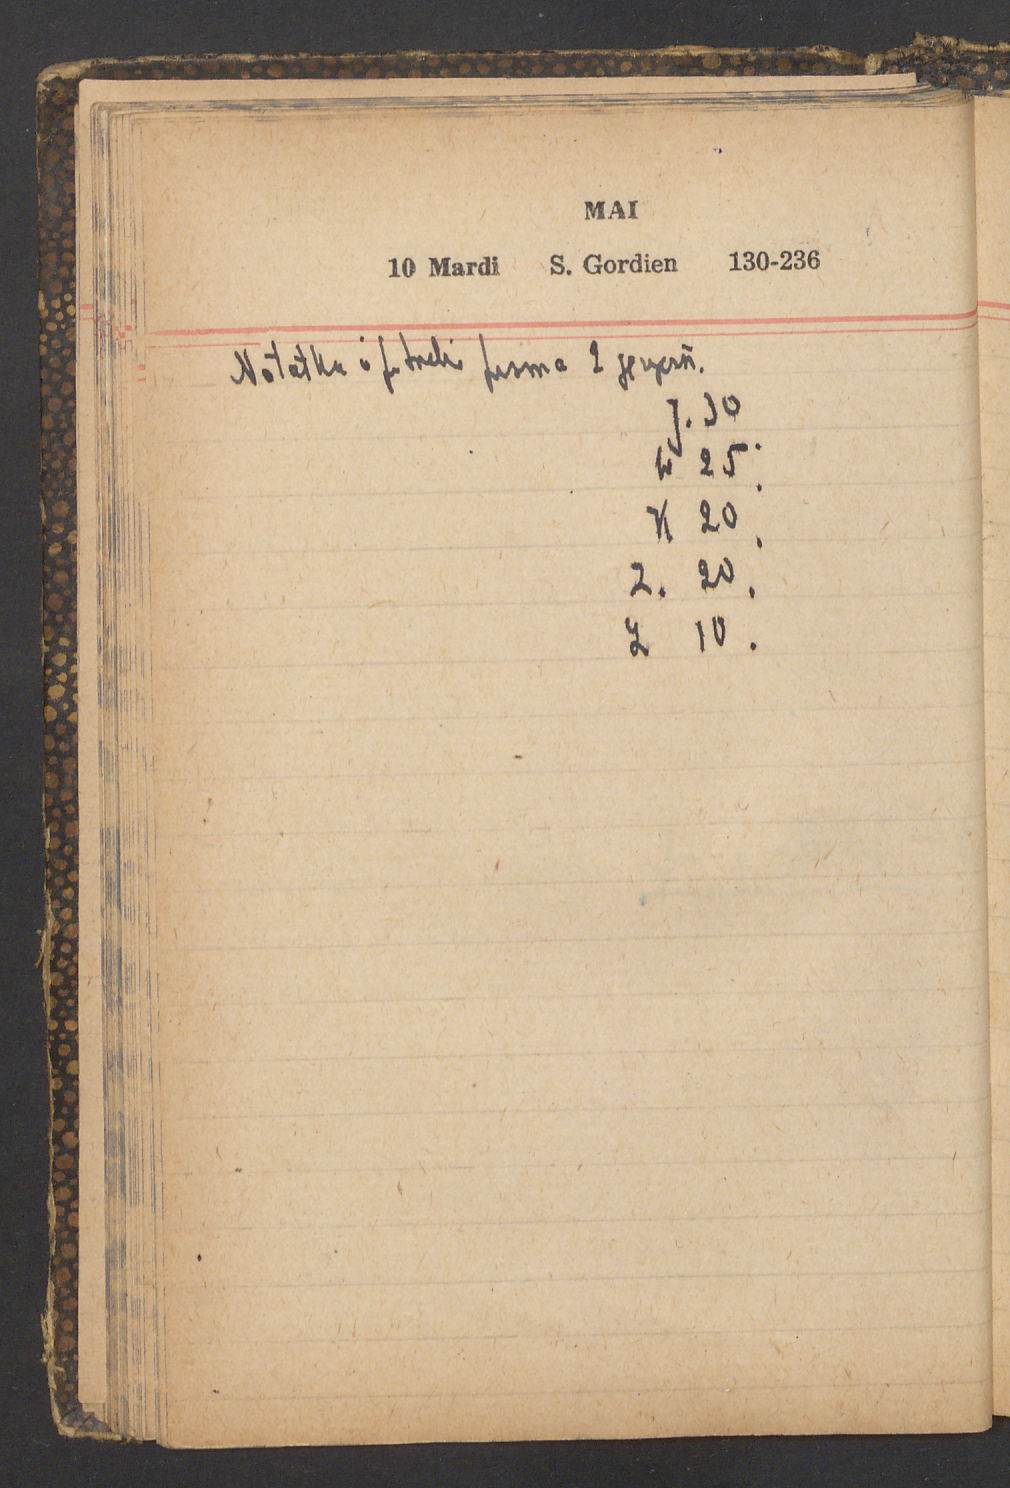 MAI
10 Mardi S. Gordien 130-236
Notatka o pisma 2
J. 30
W 25.
K 20.
Z. 20.
Z 10.